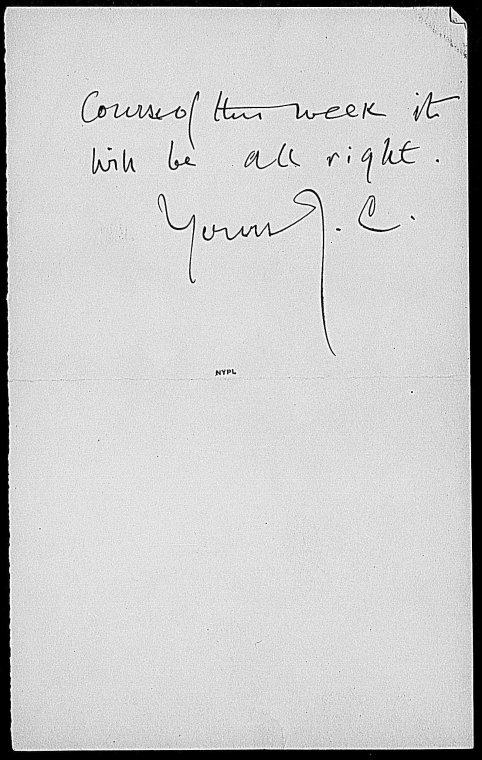 Course of this week it
will be all right.
Yours J. C.
NYPL